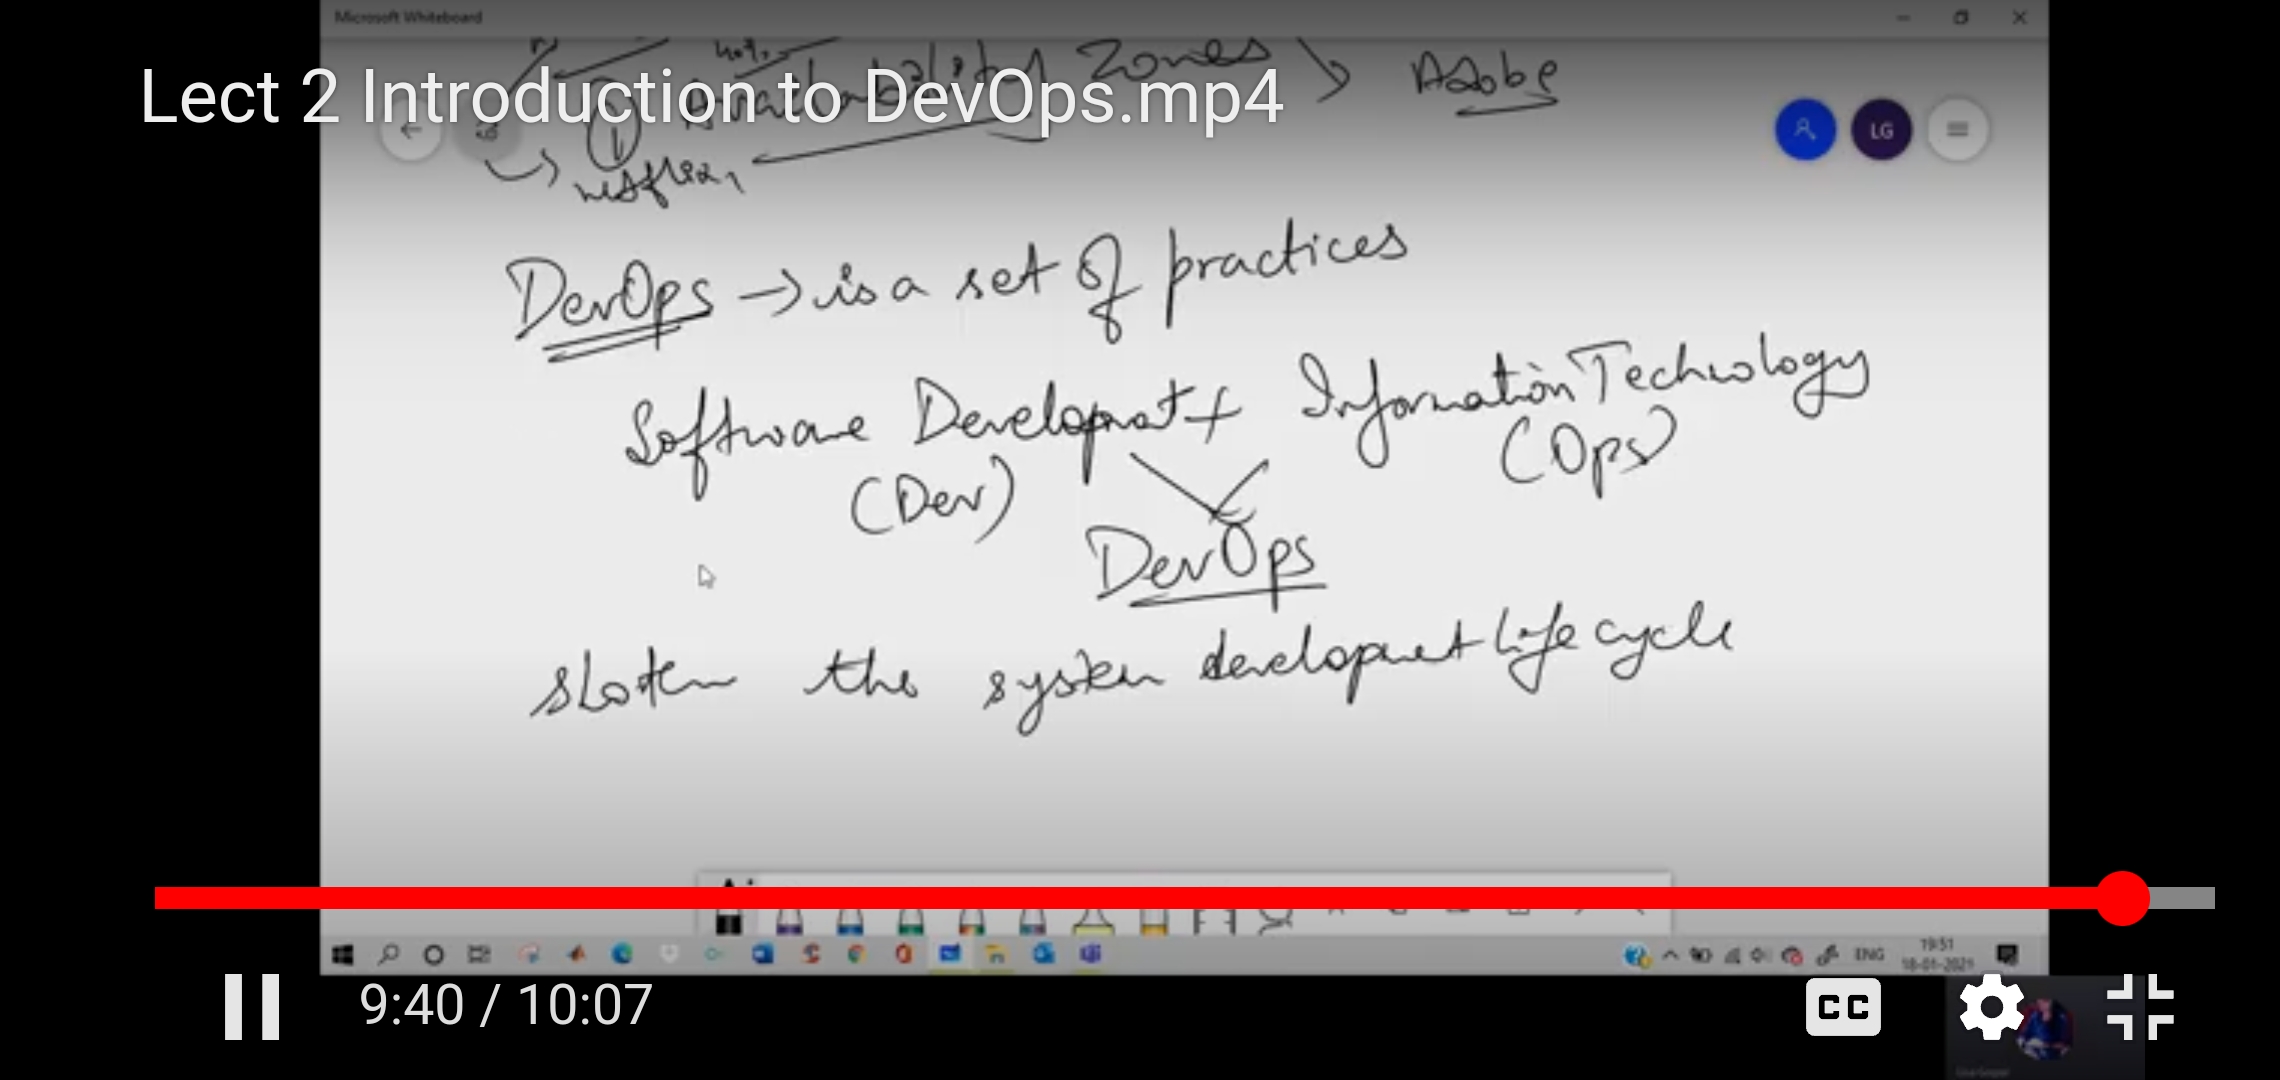 Microsoft Whiteboard
Zones Adobe
Lect 2 Introduction to DevOps.mp4
LG
①
netflix,
DevOps → is a set of practices
Software Developmt + Information Technology
(Dev) (Ops)
DevOps
the system development life cycle
ENG
19:51
18-01-2021
9:40 / 10:07
CC